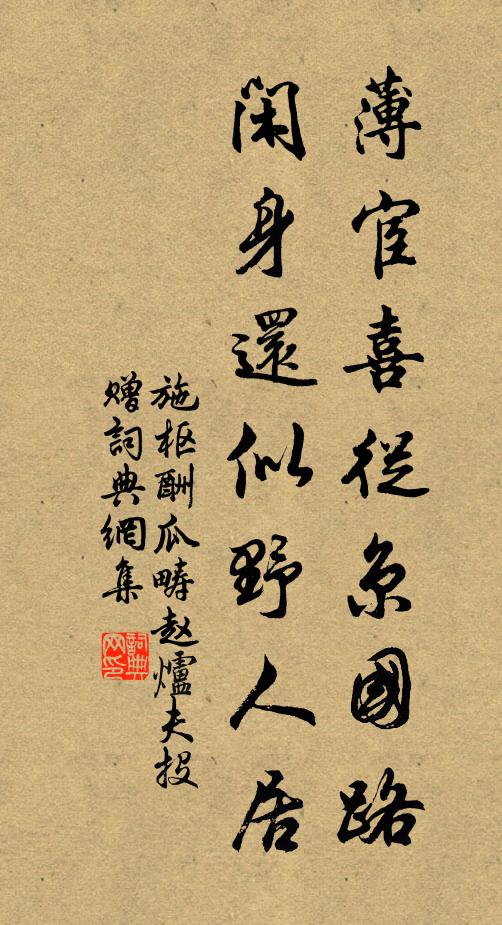 薄宦喜從京國路
閑身還似野人居
施枢酬瓜疇赵爐夫投
赠詞典網集
詞典网印